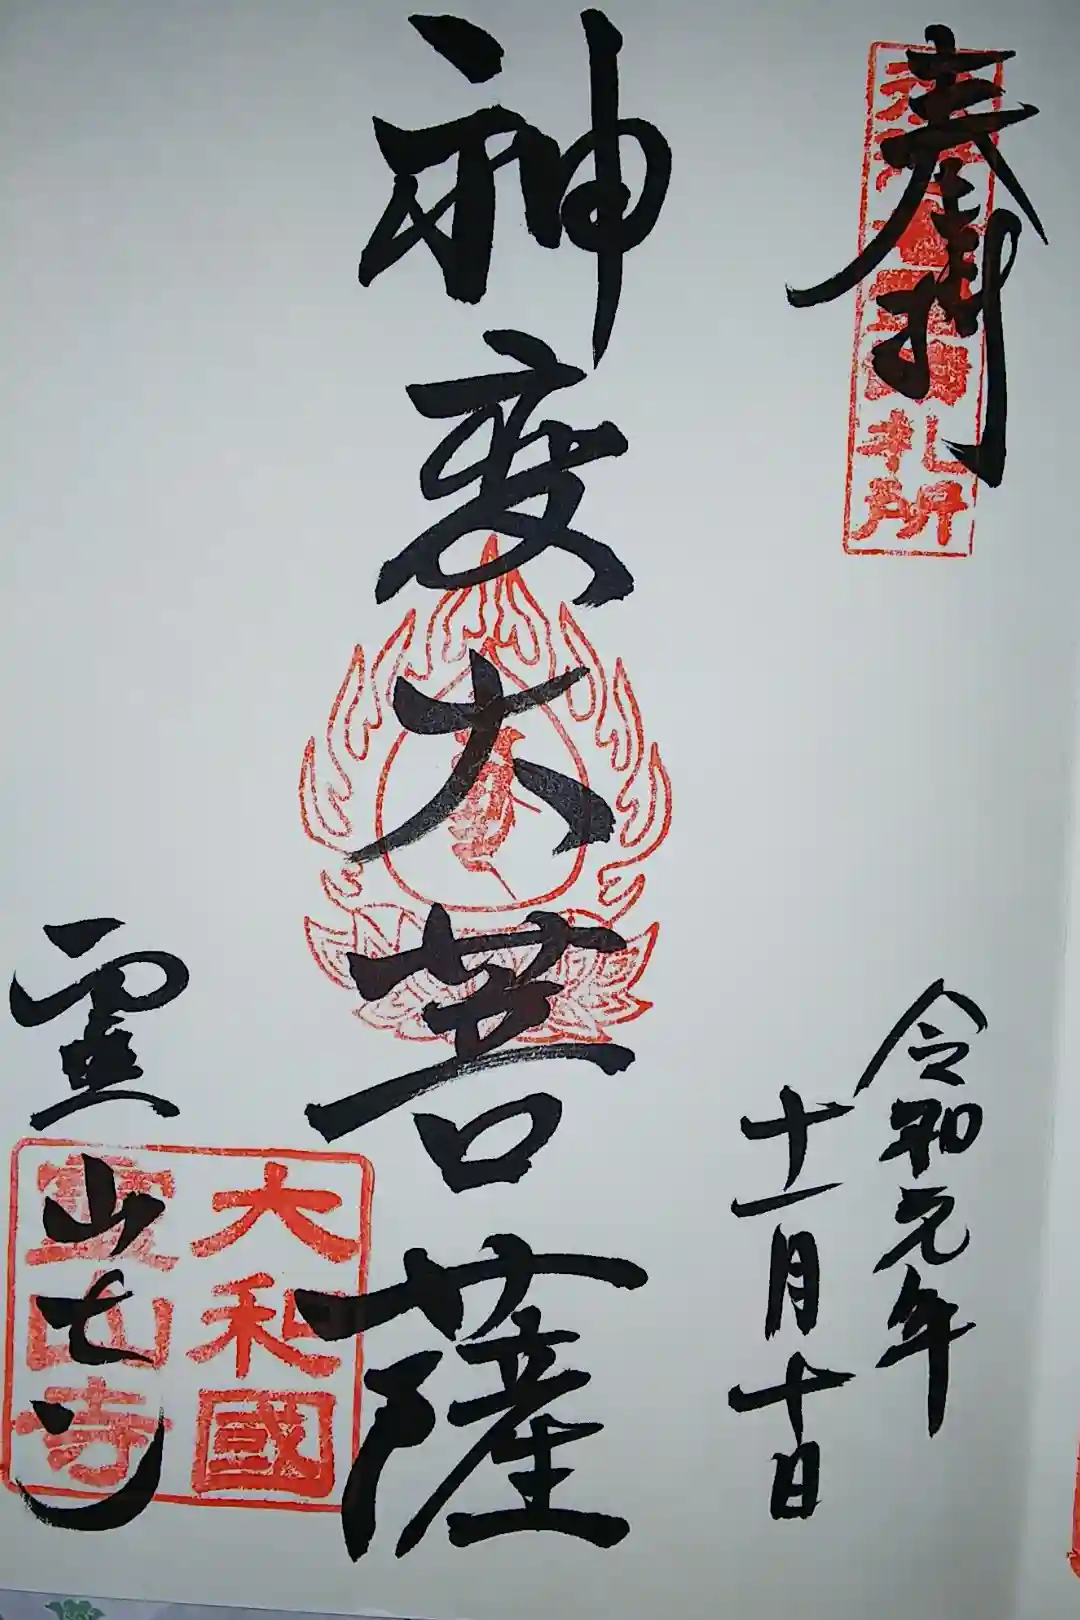 奉拝
札所
令和元年
十一月十日
神変大菩薩
大和國
霊山寺
霊山寺